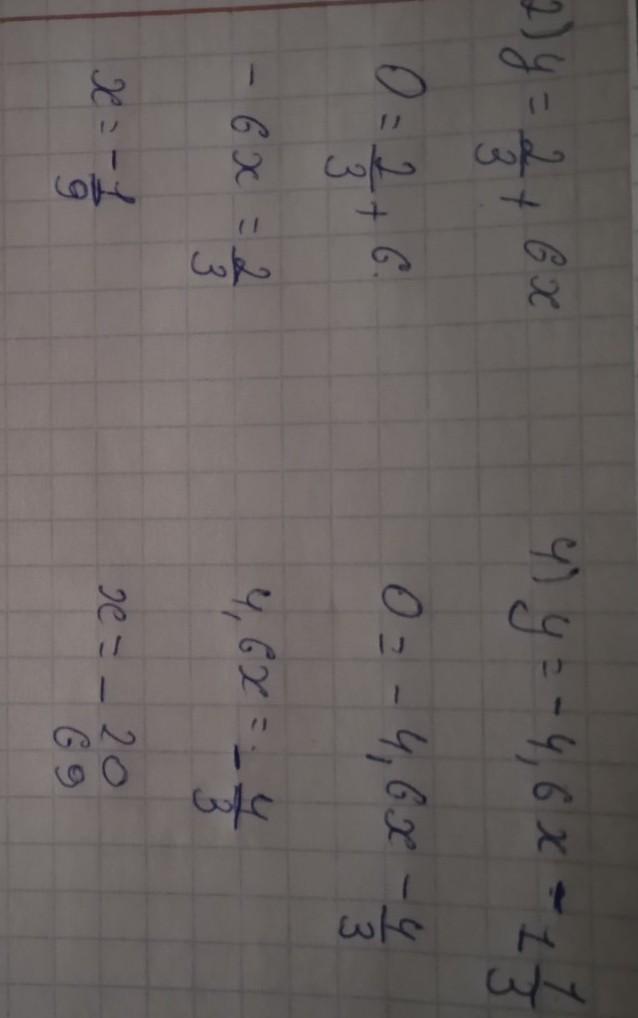 2) y = 2/3 + 6x
0 = 2/3 + 6
- 6x = 2/3
x = - 1/9
4) y = - 4,6x - 1 1/3
0 = - 4,6x - 4/3
4,6x = - 4/3
x = - 20/69